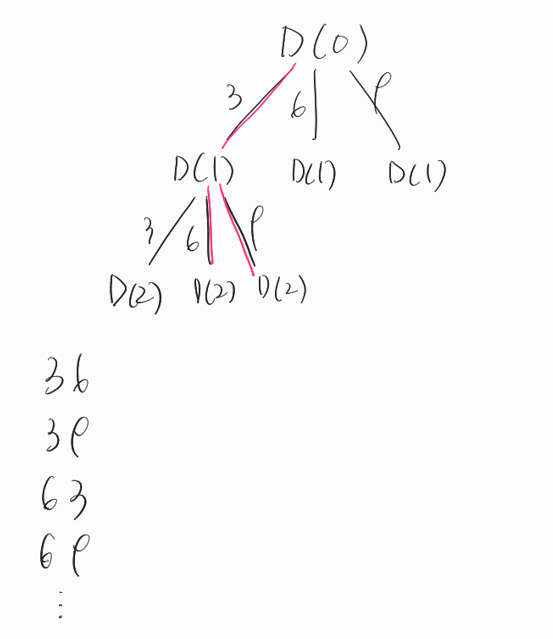 D(0)
3 6 9
D(1) D(1) D(1)
3 6 9
D(2) D(2) D(2)
3 6
3 9
6 3
6 9
⋮